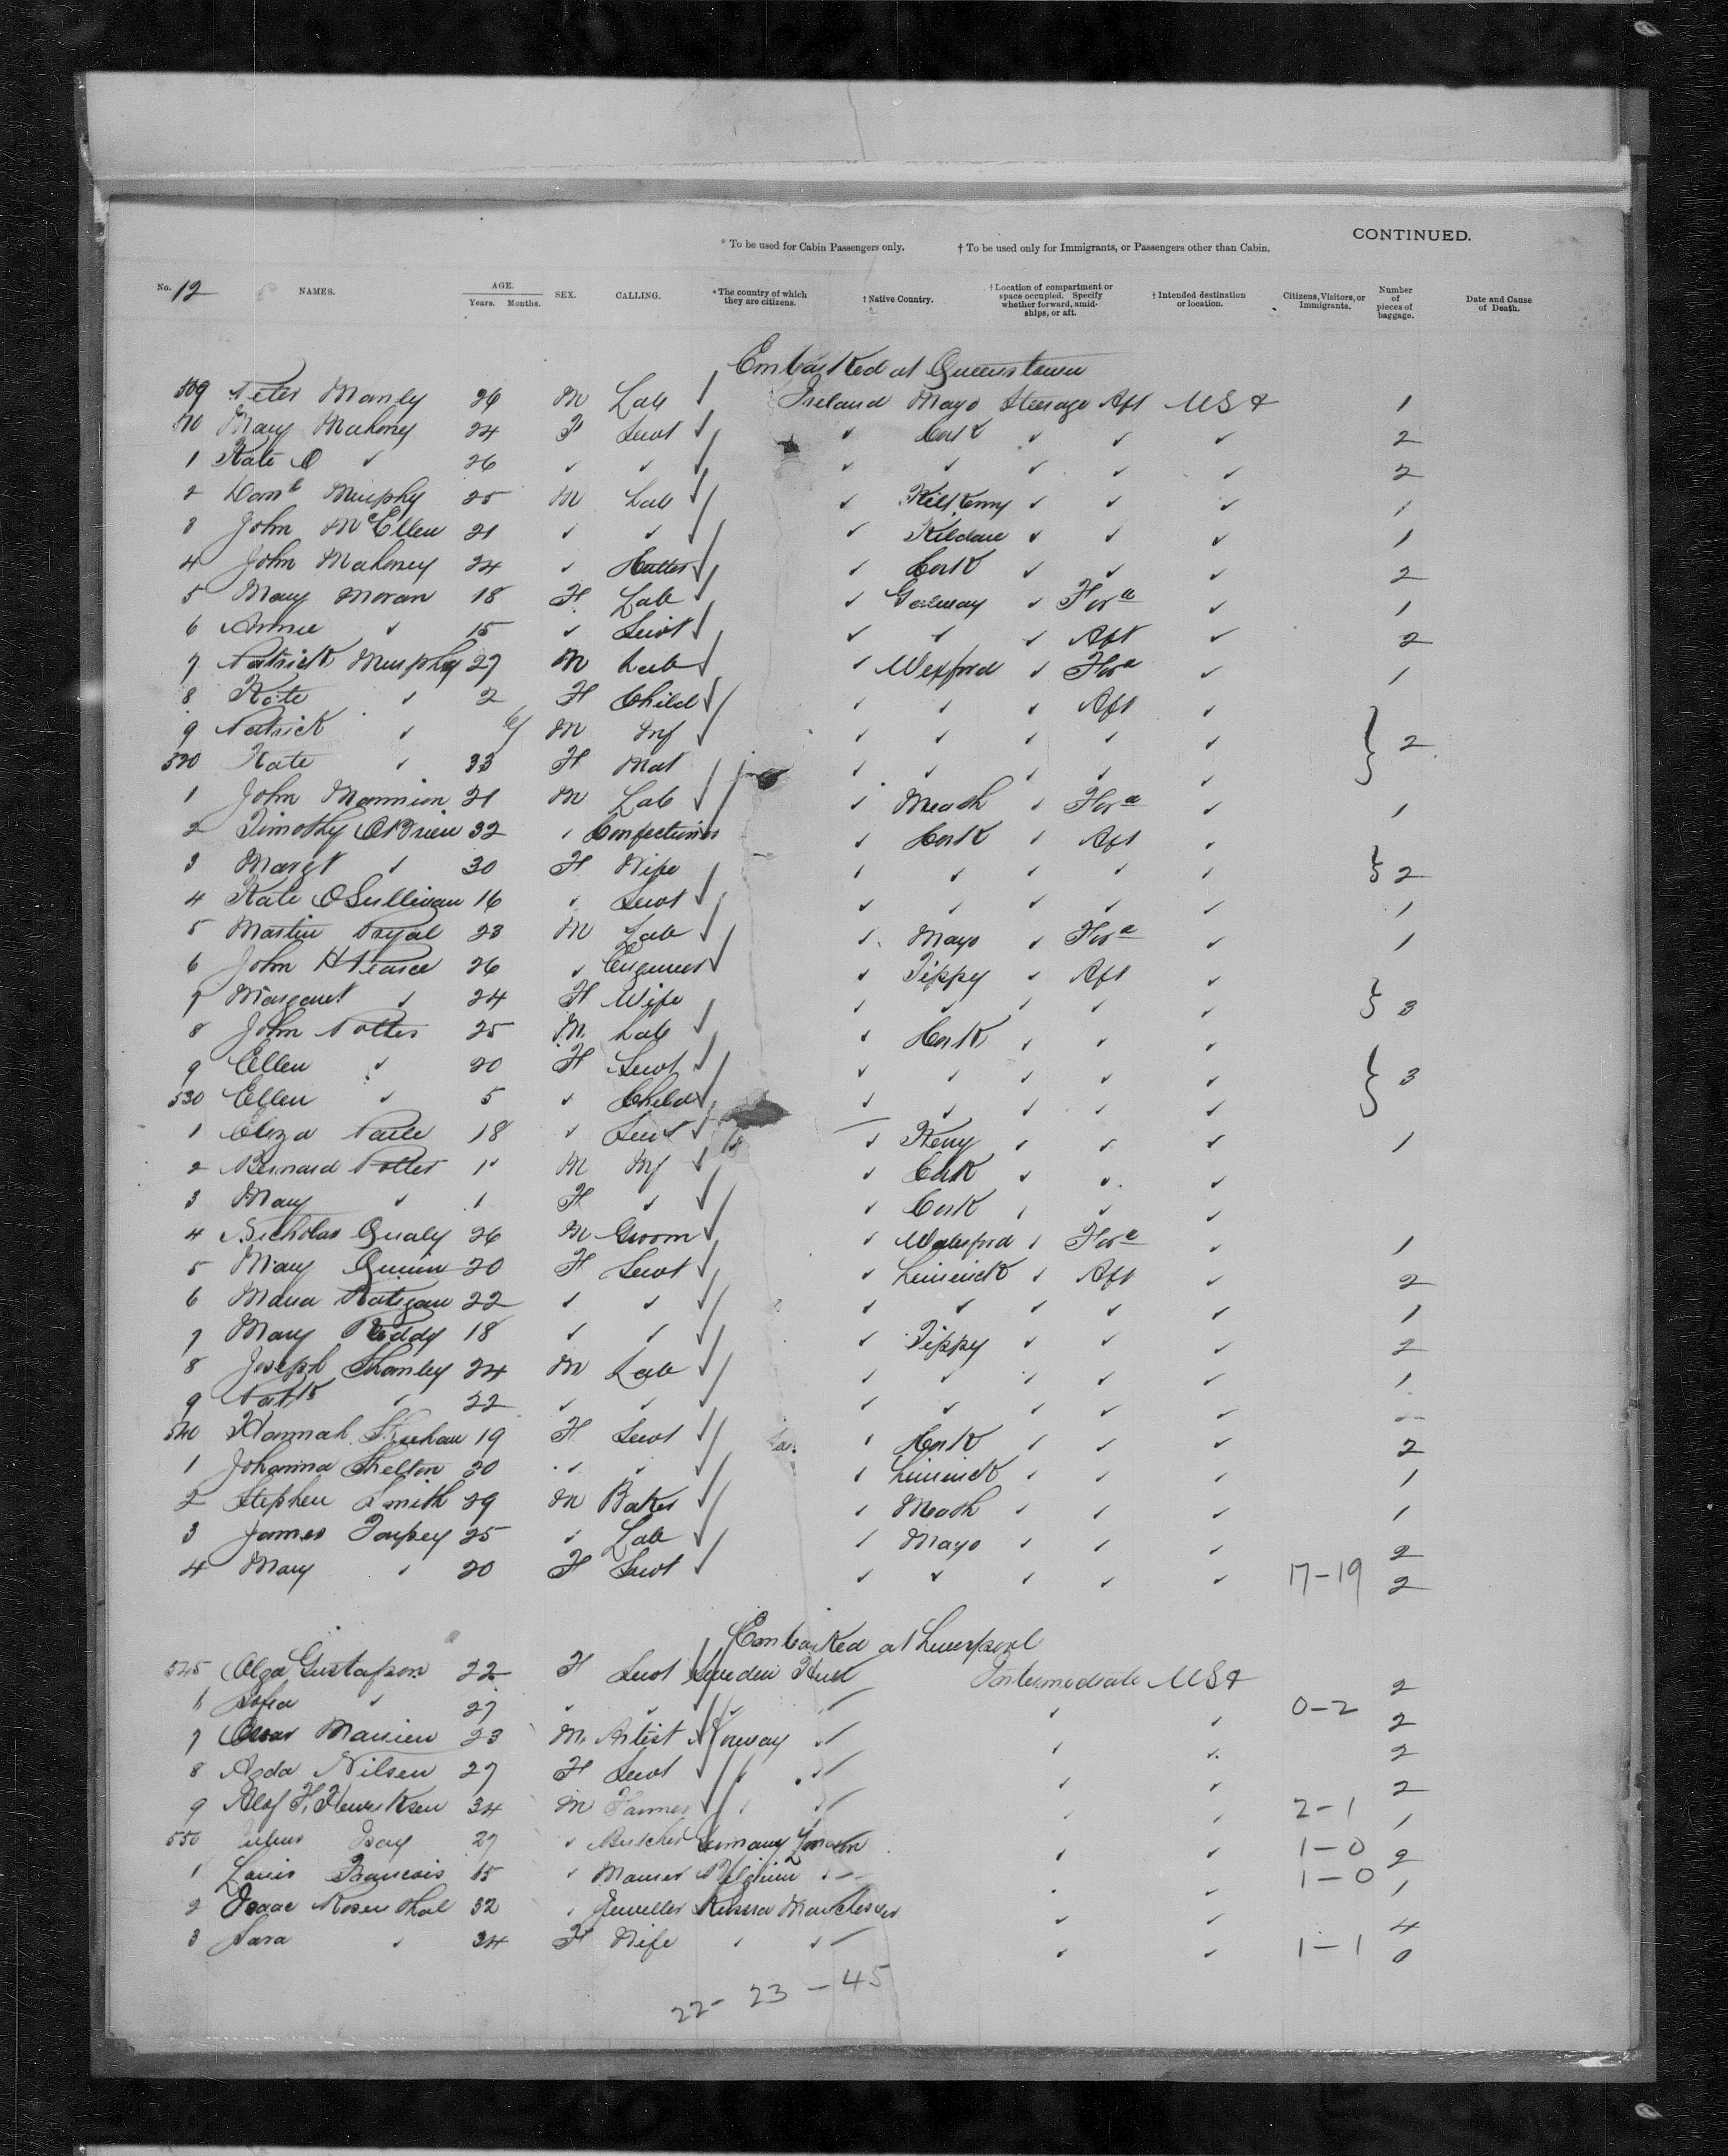 CONTINUED.
* To be used for Cabin Passengers only. † To be used only for Immigrants, or Passengers other than Cabin.
No. 12 NAMES. AGE. Years. Months. SEX. CALLING. * The country of which they are citizens. † Native Country. † Location of compartment or space occupied. Specify whether forward, amidships, or aft. † Intended destination or location. Citizens, Visitors, or Immigrants. Number of pieces of baggage. Date and Cause of Death.
Embarked at Queenstown
509 Peter Manly 26 M Lab Ireland Mayo Steerage Aft USA 1
510 Mary Mahoney 24 F Servt ✓ Cork ✓ ✓ ✓ 2
1 Kate O ✓ 26 ✓ ✓ ✓ ✓ ✓ ✓ ✓ 2
2 Danl Murphy 25 M Lab ✓ Kilkenny ✓ ✓ ✓ 1
3 John McEllen 21 ✓ ✓ ✓ Kildare ✓ ✓ ✓ 1
4 John Mahoney 24 ✓ Hatter ✓ Cork ✓ ✓ ✓ 2
5 Mary Moran 18 F Lab ✓ Galway ✓ Ford ✓ 1
6 Annie ✓ 15 ✓ Servt ✓ ✓ ✓ Aft ✓ 2
7 Patrick Murphy 27 M Lab ✓ Wexford ✓ Ford ✓ 1
8 Kate ✓ 2 F Child ✓ ✓ ✓ Aft ✓
9 Patrick ✓ M Inf ✓ ✓ ✓ ✓ ✓ } 2
520 Kate ✓ 33 F Mat ✓ ✓ ✓ ✓ ✓
1 John Mannion 21 M Lab ✓ Meath ✓ Ford ✓ 1
2 Timothy OBrien 32 ✓ Confectioner ✓ Cork ✓ Aft ✓
3 Margt ✓ 30 F Wife ✓ ✓ ✓ ✓ ✓ } 2
4 Kate OSullivan 16 ✓ Servt ✓ ✓ ✓ ✓ ✓ 1
5 Martin Pryal 23 M Lab ✓ Mayo ✓ Ford ✓ 1
6 John H Pearce 26 ✓ Engineer ✓ Tippy ✓ Aft ✓
7 Margaret ✓ 24 F Wife ✓ ✓ ✓ ✓ ✓ } 3
8 John Potter 25 M Lab ✓ Cork ✓ ✓ ✓
9 Ellen ✓ 20 F Servt ✓ ✓ ✓ ✓ ✓ } 3
530 Ellen ✓ 5 ✓ Child ✓ ✓ ✓ ✓ ✓
1 Eliza 18 ✓ Servt ✓ Kerry ✓ ✓ ✓ 1
2 Bernard Potter 1 M Inf ✓ Cork ✓ ✓ ✓
3 Mary ✓ 1 F ✓ ✓ Cork ✓ ✓ ✓
4 Nicholas Qualy 26 M Groom ✓ Waterford ✓ Ford ✓ 1
5 Mary Quinn 20 F Servt ✓ Limerick ✓ Aft ✓ 2
6 Maria Ratigan 22 ✓ ✓ ✓ ✓ ✓ ✓ ✓ 1
7 Mary Reddy 18 ✓ ✓ ✓ Tippy ✓ ✓ ✓ 2
8 Joseph Shanley 24 M Lab ✓ ✓ ✓ ✓ ✓ 1
9 Patk ✓ 22 ✓ ✓ ✓ ✓ ✓ ✓ ✓
540 Hannah Sheehan 19 F Servt ✓ Cork ✓ ✓ ✓ 2
1 Johanna Shelton 20 ✓ ✓ ✓ Limerick ✓ ✓ ✓ 1
2 Stephen Smith 29 M Baker ✓ Meath ✓ ✓ ✓ 1
3 James Torpey 25 ✓ Lab ✓ Mayo ✓ ✓ ✓ 2
4 Mary ✓ 20 F Servt ✓ ✓ ✓ ✓ ✓ 17-19 2
Embarked at Liverpool
545 Olga Gustafson 22 F Servt Sweden Hull Intermediate USA 2
6 Sofia ✓ 27 ✓ ✓ ✓ ✓ ✓ ✓ 0-2 2
7 23 M Artist Norway ✓ ✓ ✓ 2
8 Agda Nilsen 27 F Servt ✓ ✓ ✓ ✓ 2
9 Olaf H. Henriksen 34 M Farmer ✓ ✓ ✓ ✓ 2-1 1
550 Julius Isay 27 ✓ Butcher Germany London ✓ ✓ 1-0 2
1 Louis Francois 15 ✓ Belgium ✓ ✓ ✓ 1-0 1
2 Isaac Rosenthal 32 ✓ Jeweller Russia Manchester ✓ ✓ 4
3 Sara ✓ 34 F Wife ✓ ✓ ✓ ✓ 1-1 0
22-23-45